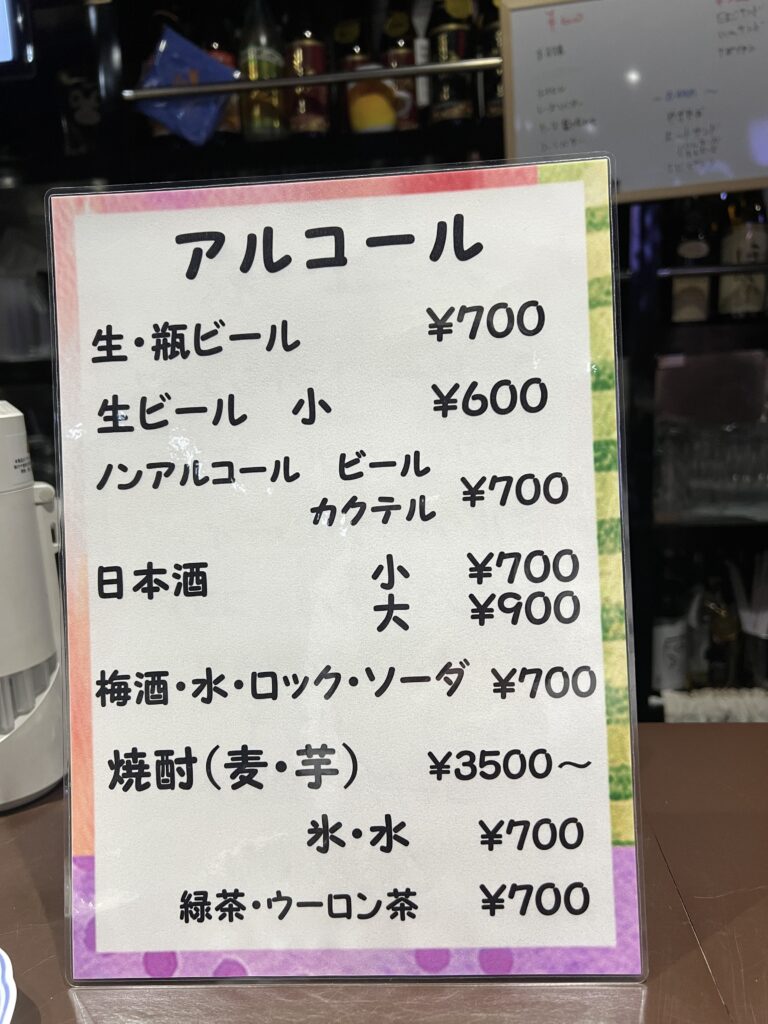 アルコール
生・瓶ビール ¥700
生ビール 小 ¥600
ノンアルコール ビール
カクテル ¥700
日本酒 小 ¥700
大 ¥900
梅酒・水・ロック・ソーダ ¥700
焼酎(麦・芋) ¥3500~
氷・水 ¥700
緑茶・ウーロン茶 ¥700